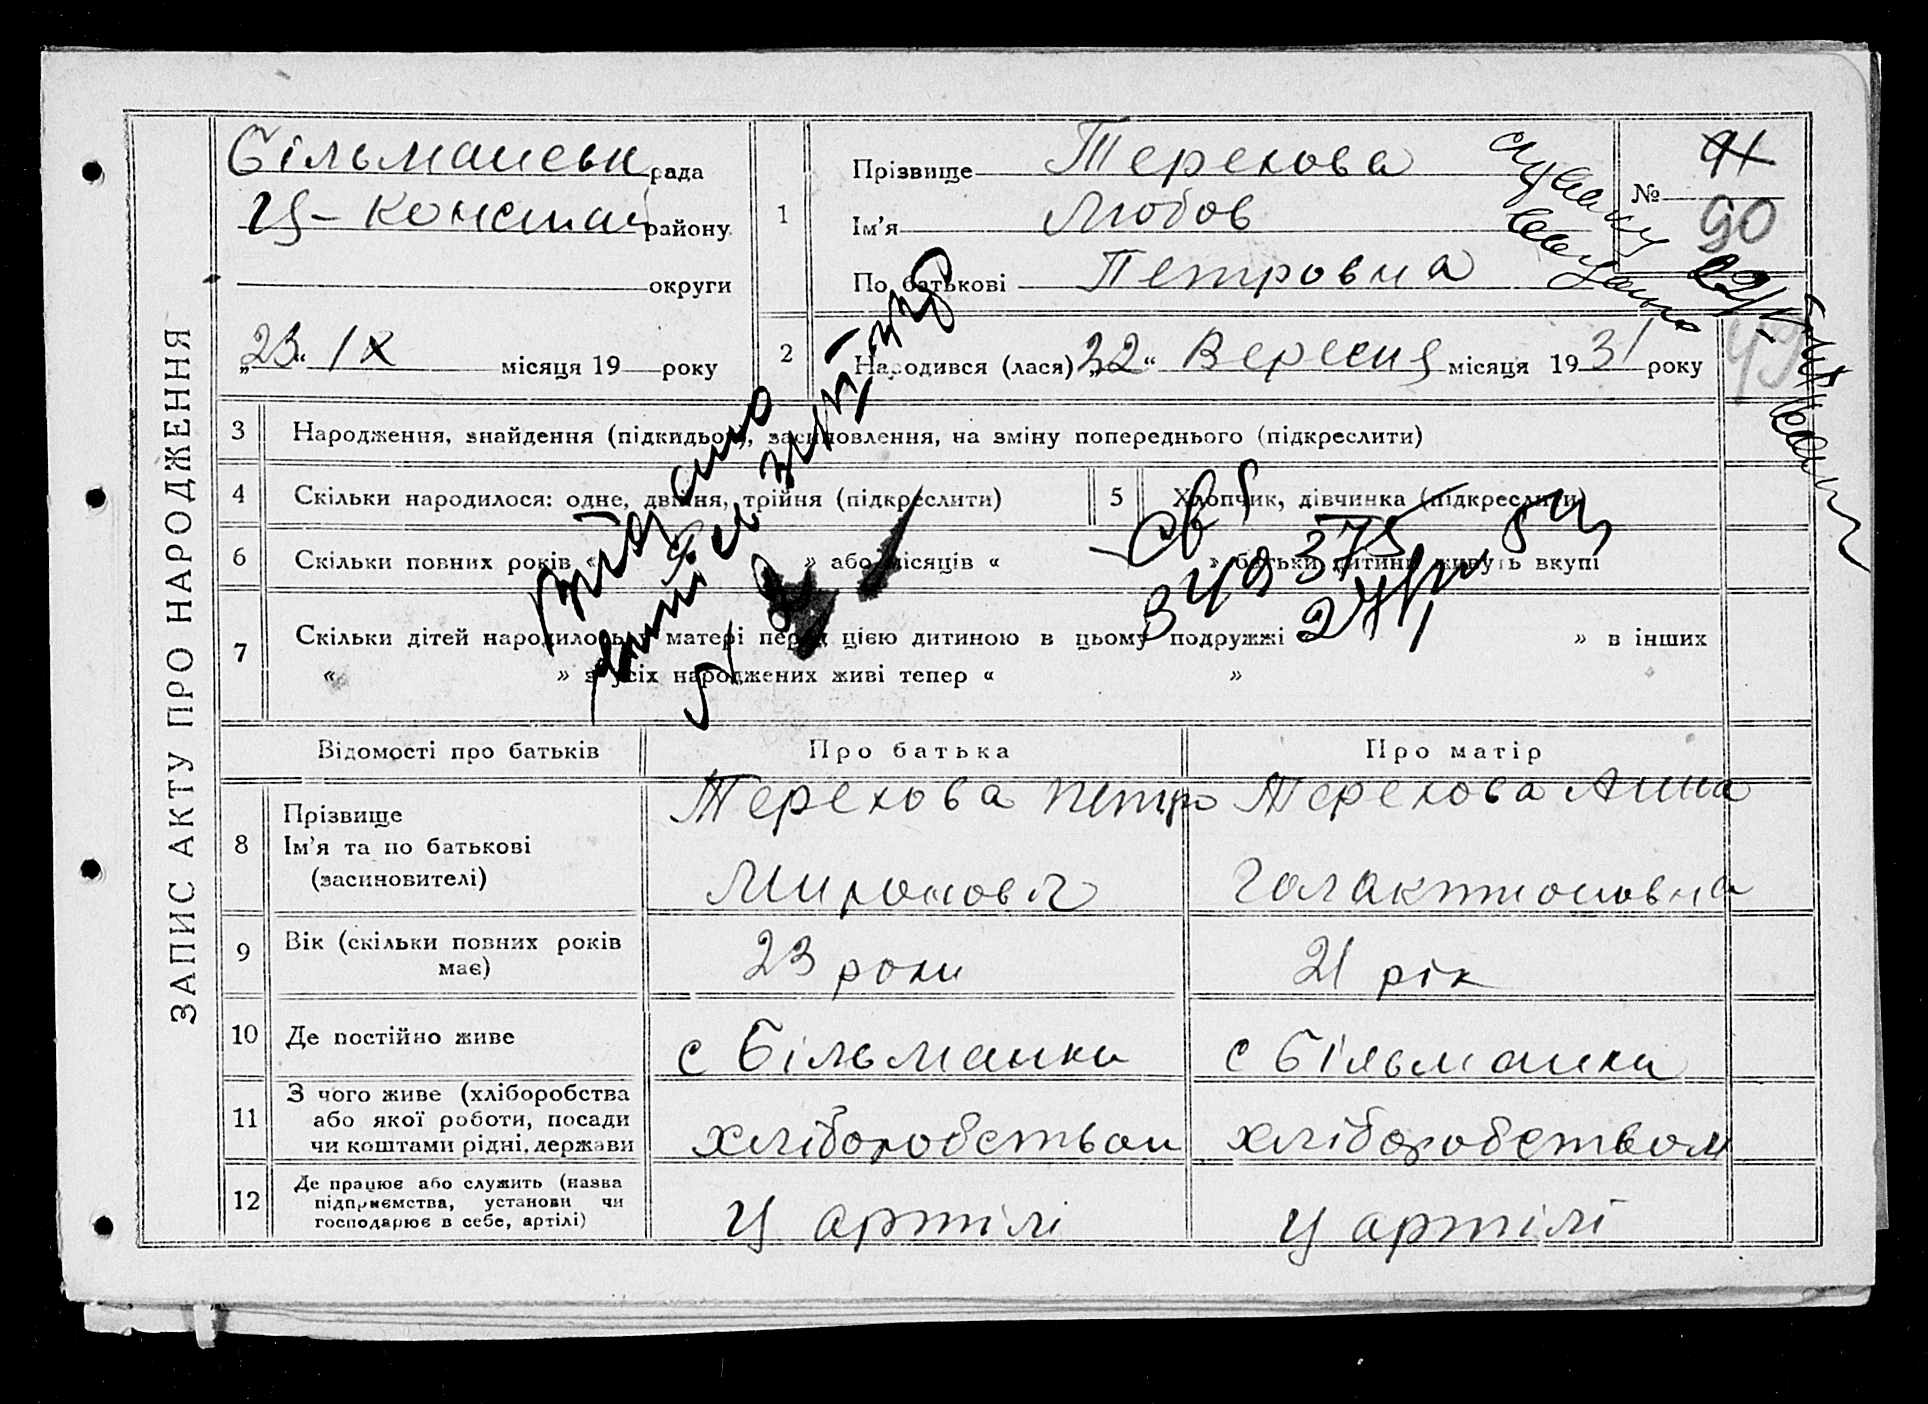 ЗАПИС АКТУ ПРО НАРОДЖЕННЯ
Більманськ рада
Ц-Констан району
округи
„23“ IX місяця 19 року
1
Прізвище Терехова
Ім'я Любов
По батькові Петровна
№ 91
90
49
2
Народився (лася) „22“ Вересня місяця 1931 року
3 Народження, знайдення (підкидьок), засиновлення, на зміну попереднього (підкреслити)
4 Скільки народилося: одне, двійня, трійня (підкреслити)
5 Хлопчик, дівчинка (підкреслити)
6 Скільки повних років « » або місяців « » батьки дитини живуть вкупі
7 Скільки дітей народилось у матері перед цією дитиною в цьому подружжі » в інших
« » з усіх народжених живі тепер « »
375
Відомості про батьків Про батька Про матір
8 Прізвище
Ім'я та по батькові
(засиновителі)
Терехова Петро
Миронович
Терехова Анна
Галактионовна
9 Вік (скільки повних років
має)
23 роки
21 рік
10 Де постійно живе
с Більманка
с Більманка
11 З чого живе (хліборобства
або якої роботи, посади
чи коштами рідні, держави
хліборобством
хліборобством
12 Де працює або служить (назва
підприємства, установи чи
господарює в себе, артілі)
У артілі
У артілі